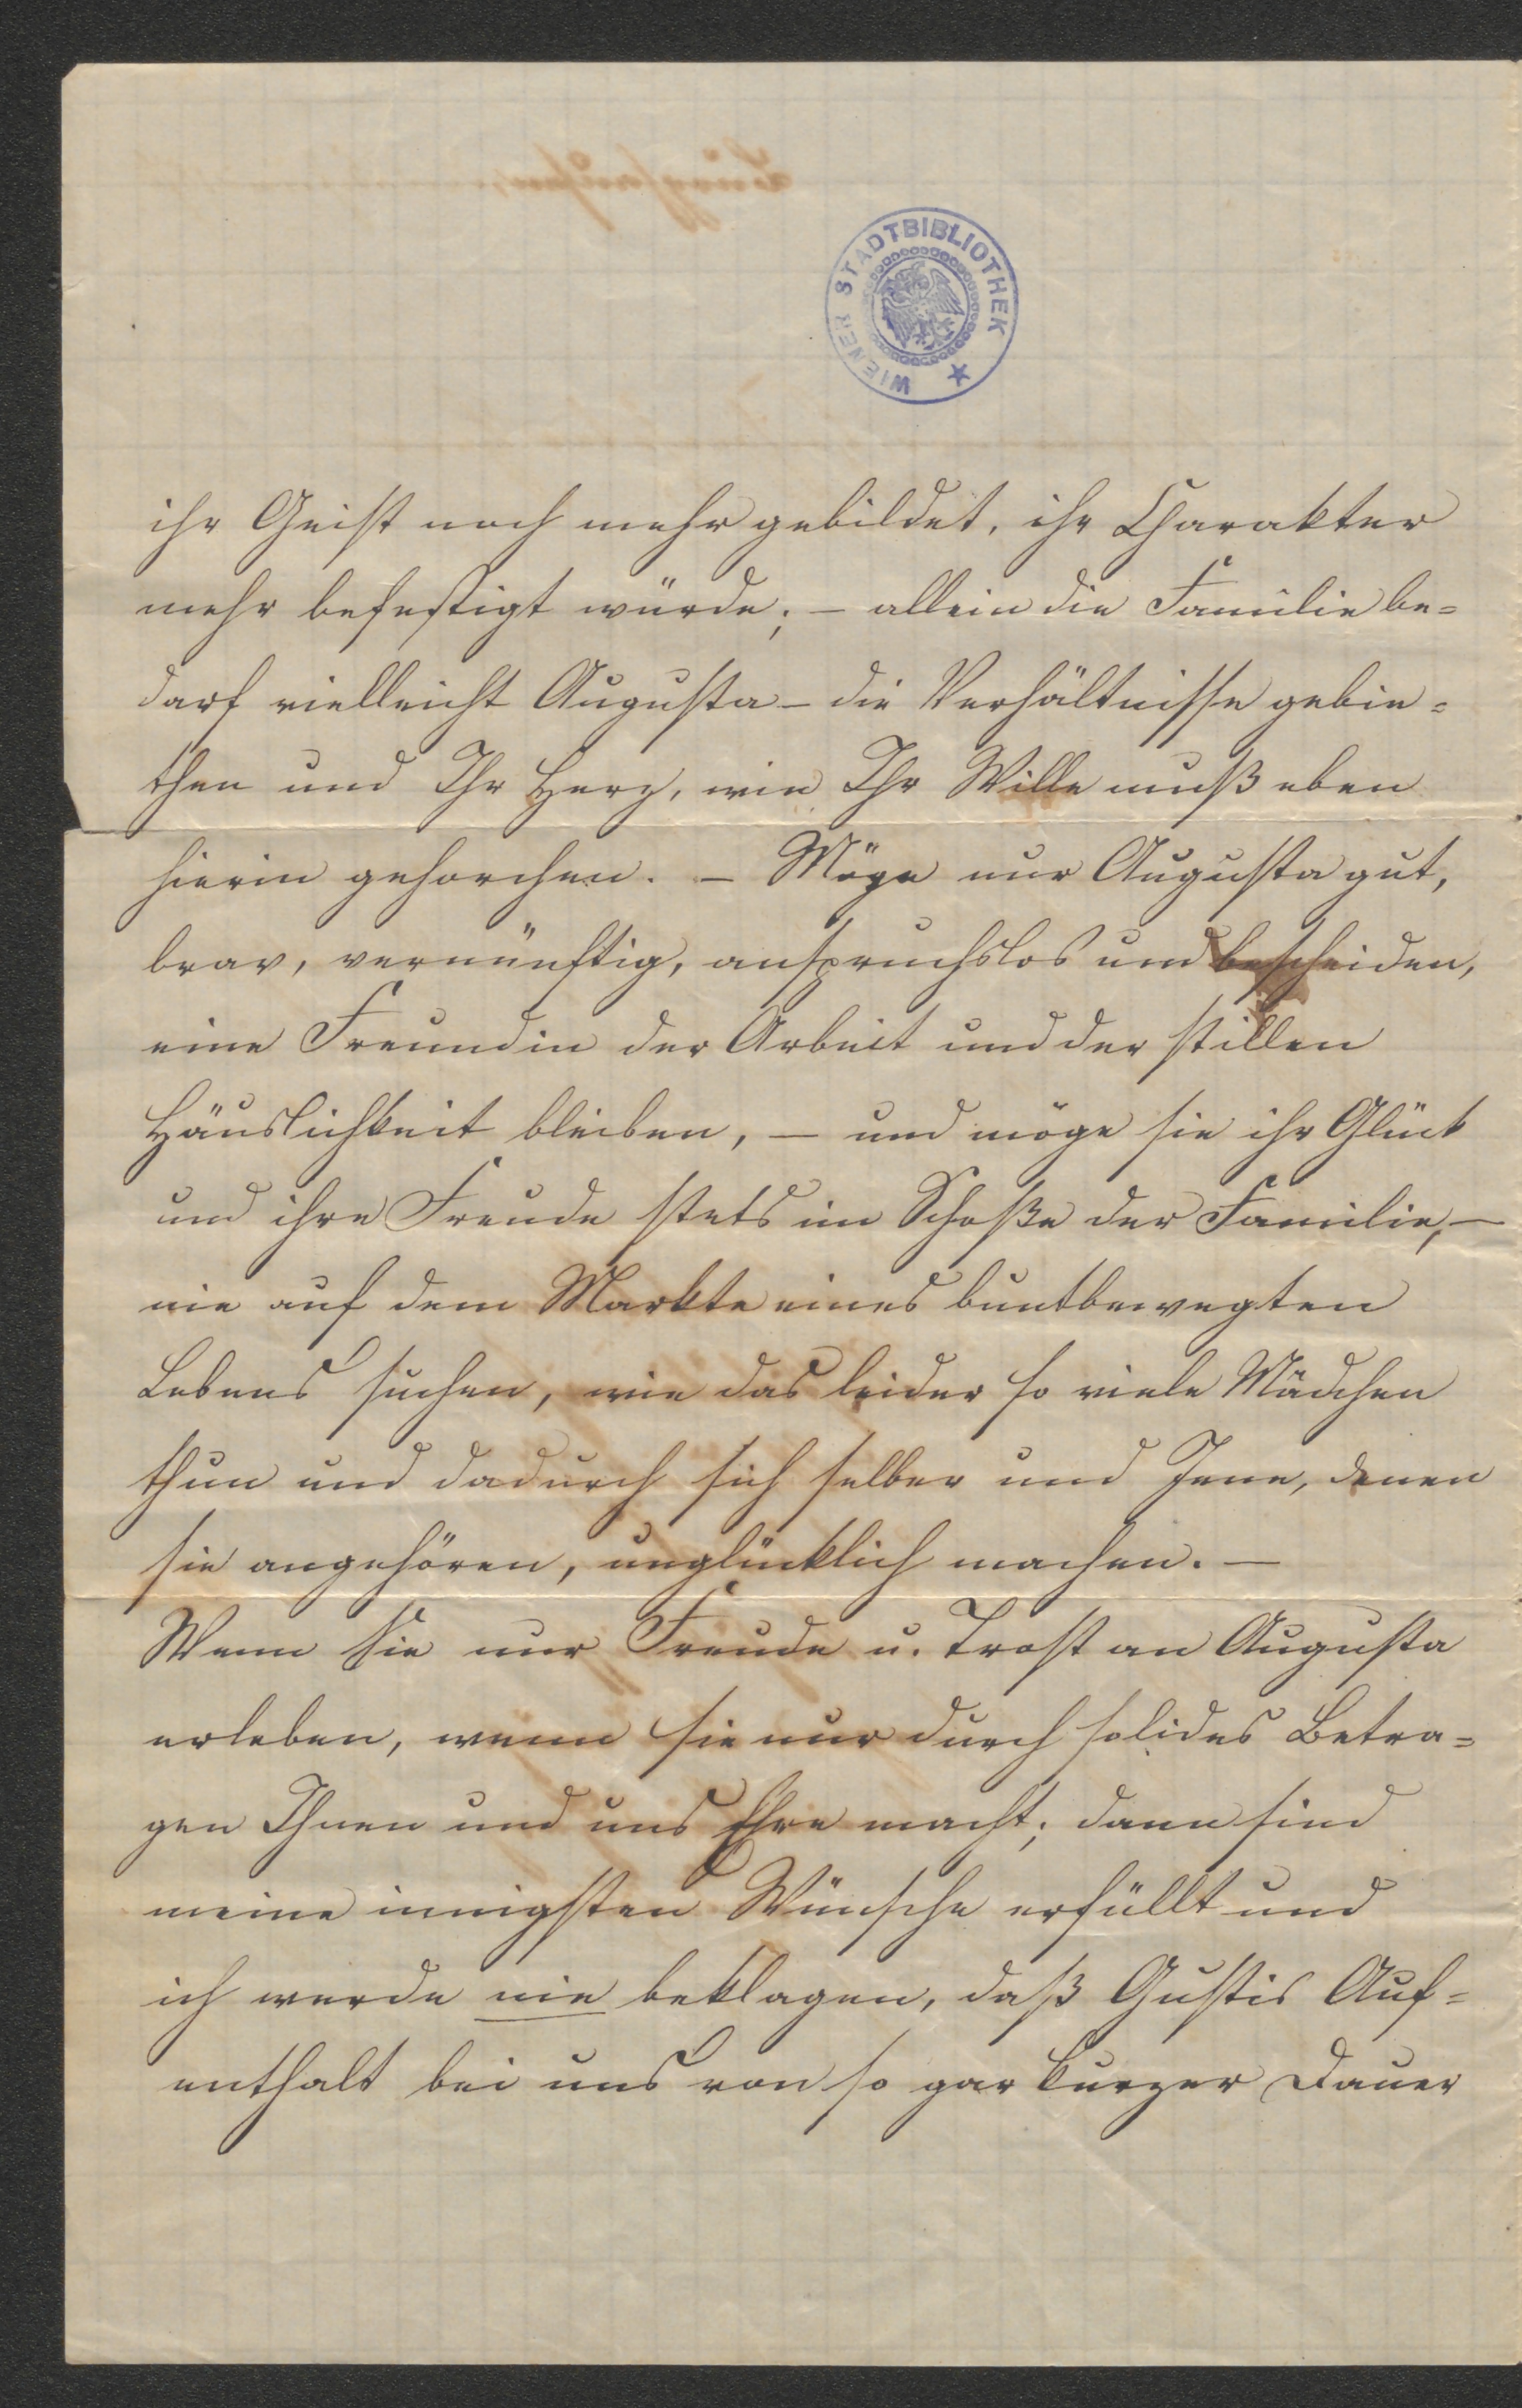 WIENER STADTBIBLIOTHEK
ihr Geist noch mehr gebildet, ihr Charakter
mehr befestigt würde; – allein die Familie be=
darf vielleicht Augusta – die Verhältnisse gebie=
then und Ihr Herz, wie Ihr Wille muß eben
hierin gehorchen. – Möge nur Augusta gut,
brav, vernünftig, anspruchslos und bescheiden,
eine Freundin der Arbeit und der stillen
Häuslichkeit bleiben, – und möge sie ihr Glück
und ihre Freude stets im Schoße der Familie, –
nie auf dem Markte eines buntbewegten
Lebens suchen, wie das leider so viele Mädchen
thun und dadurch sich selber und Jene, denen
sie angehören, unglücklich machen. –
Wenn Sie nur Freude u. Trost an Augusta
erleben, wenn sie nur durch solides Betra=
gen Ihnen und uns Ehre macht; dann sind
meine innigsten Wünsche erfüllt und
ich werde nie beklagen, daß Gustis Auf=
enthalt bei uns von so gar kurzer Dauer